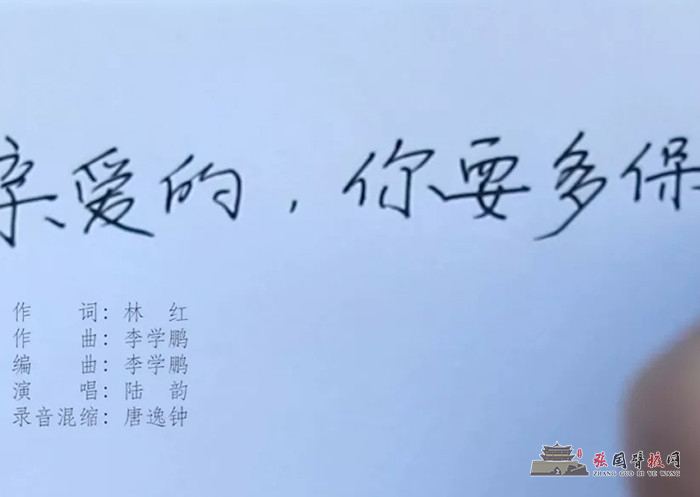 亲爱的，你要多保
作 词：林 红
作 曲：李学鹏
编 曲：李学鹏
演 唱：陆 韵
录音混缩：唐逸钟
张国臂掖网
ZHANG GUO BI YE WANG